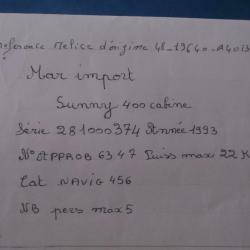 Melice d'origine 48-19640-A4013
Mar import
Sunny 400 cabine
Série 281000374 Année 1993
N° APPROB 6347 Puiss max 22 K
Cat NAVIG 456
NB pers max 5